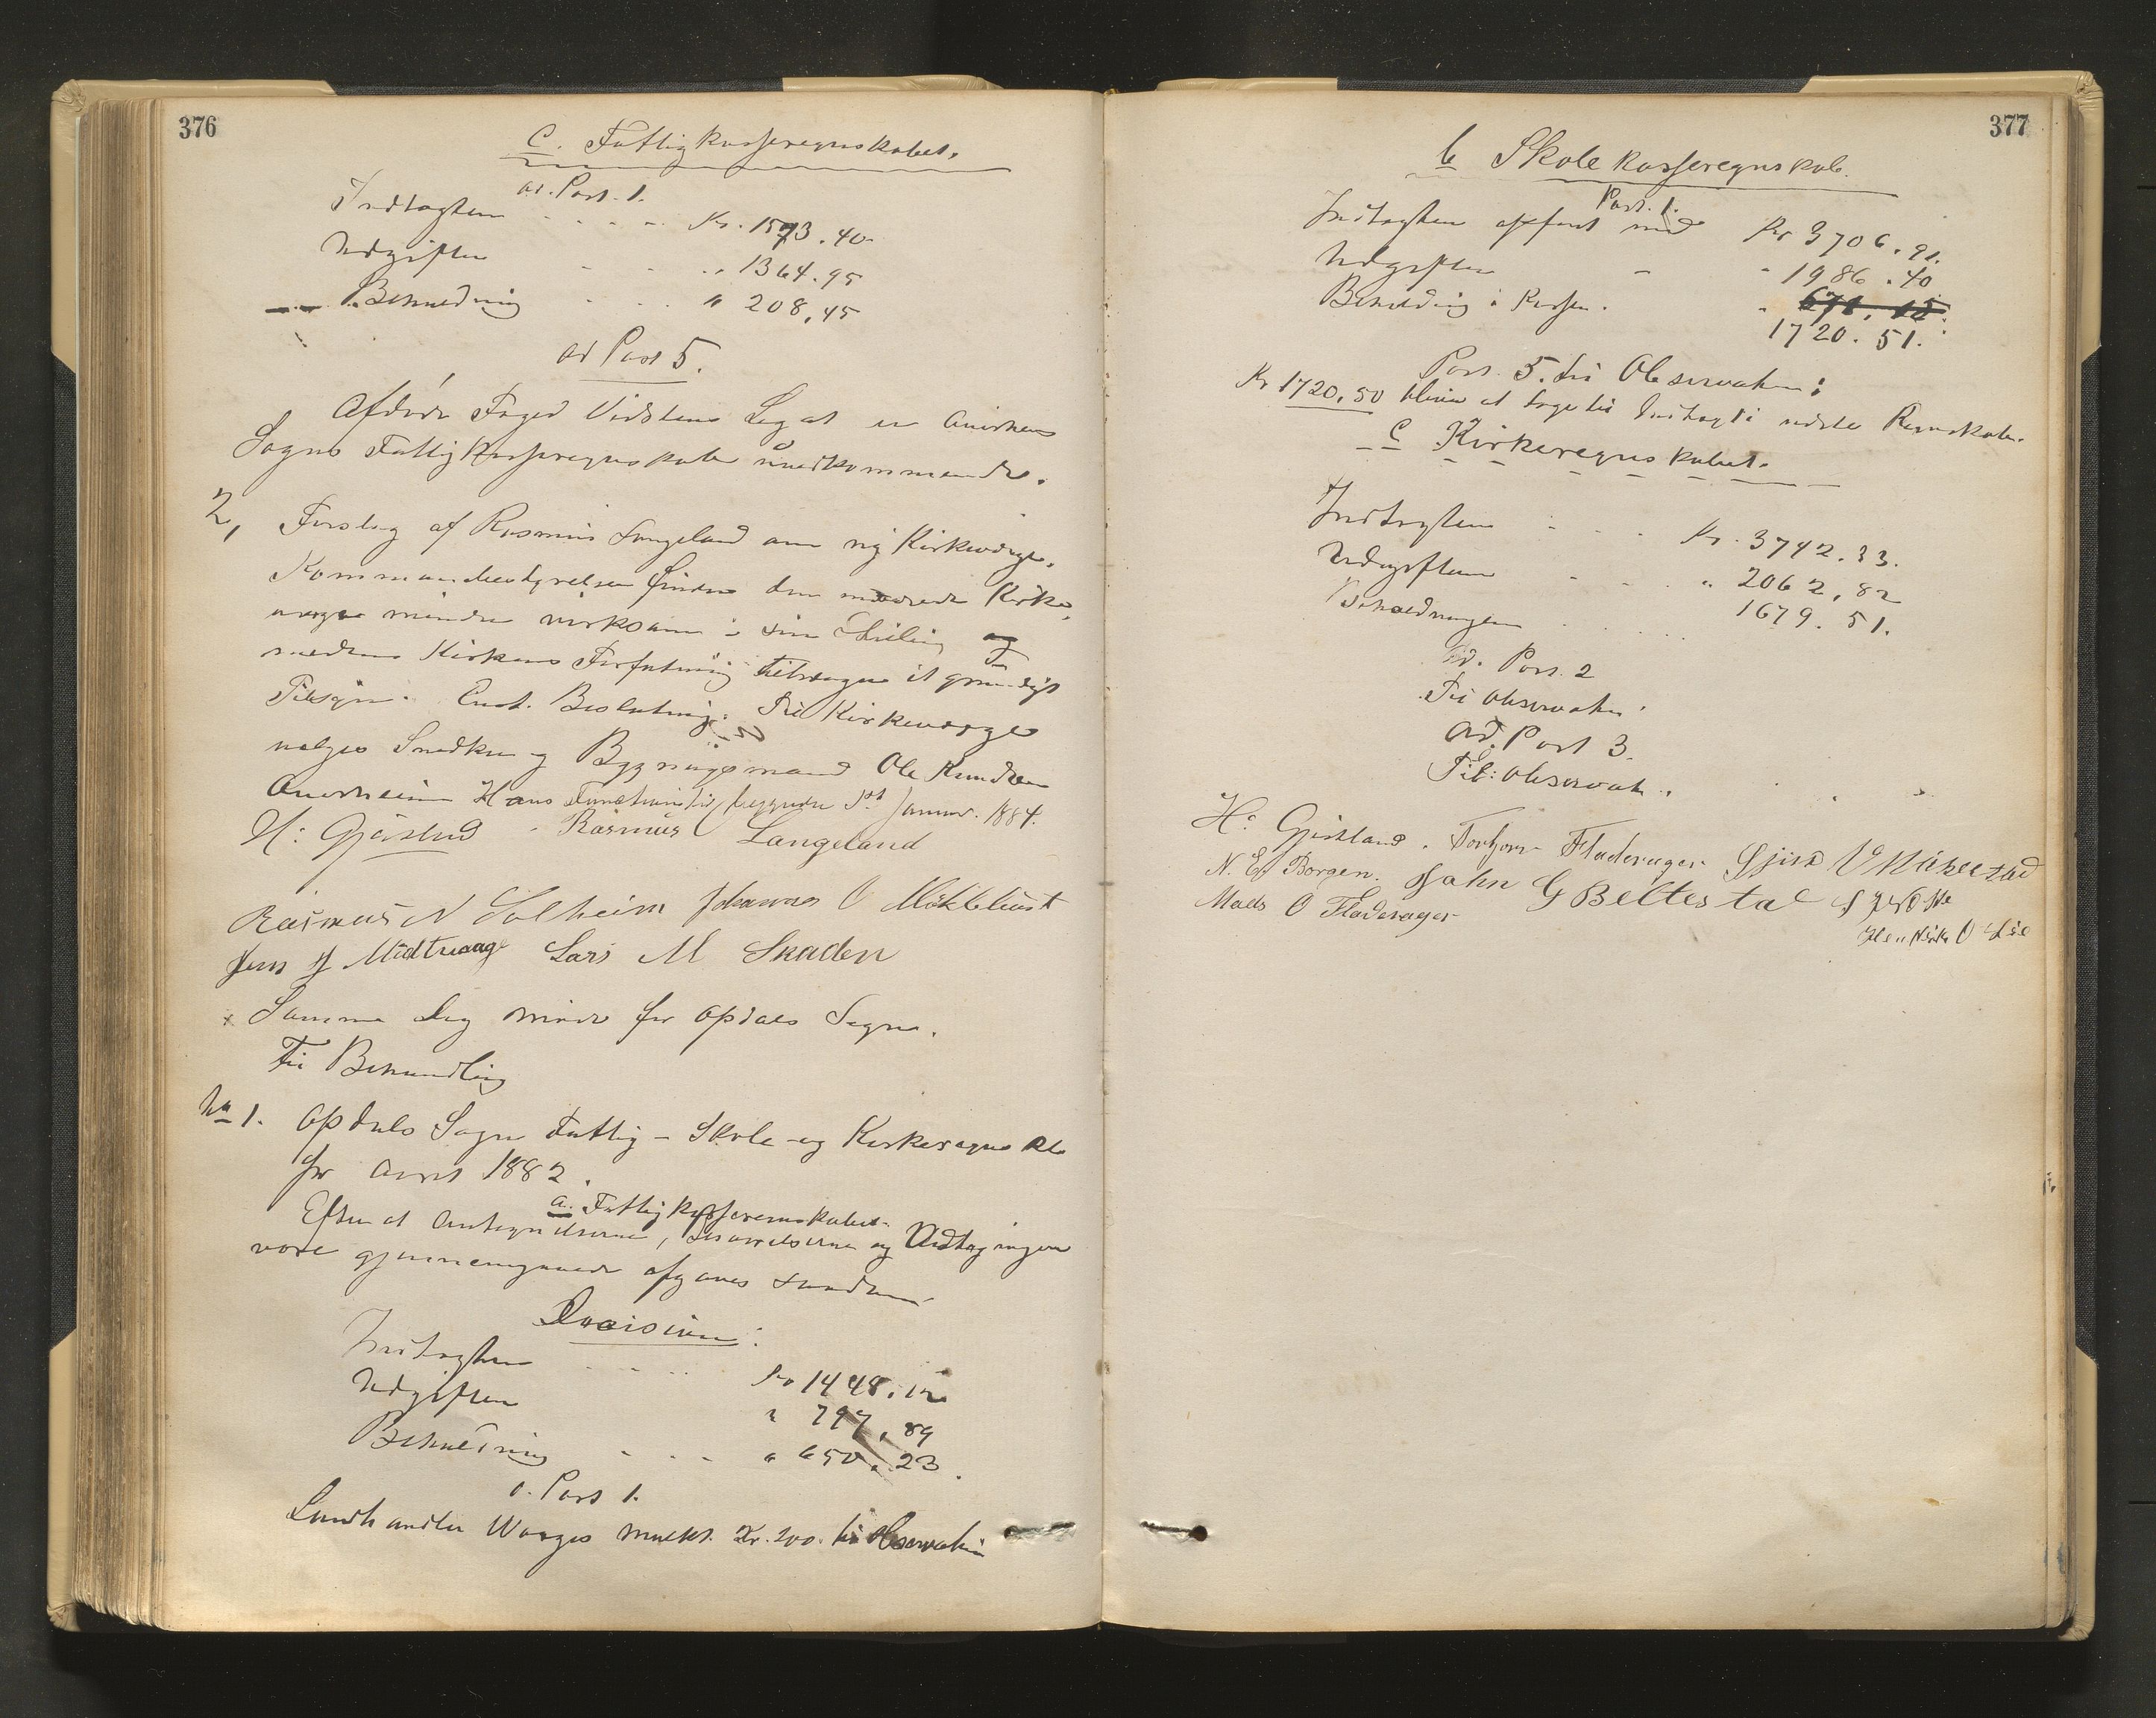 376
c. Fattigkasseregnskabet.
ad. Post. 1.
Indtægten - - - - Kr. 1573.40
Udgiften - - - „ 1364.95
Beholdning - - - „ 208,45
ad Post 5.
Afdøde Foged Vidsteens Legat er Ourskens
Sogns Fattigkasseregnskab uvedkommende.
2, Forslag af Rasmus Langeland om ny Kirkeværge.
Kommunebestyrelsen finder den nuværende Kirke,
værge mindre virksom i sin Stilling og
medens Kirkens Forfatning tiltrænger et grundigt
Tilsyn. Enst. Beslutning: Til Kirkeværge
valges Snedker og Bygningsmand Ole Knudsen
Hans Functionstid begynder 1st Januar. 1884.
H: Gjøstad Rasmus Langeland
Rasmus N Solheim Johannes O Møklebust
Jens J Midtvaage Lars M Skaden
x Samme Dag Møde for Opdals Sogn.
Til Behandling
No 1. Opdals Sogns Fattig - Skole - og Kirkeregnsk
for Aaret 1882.
a. Fattigkasseregnskabet.
Efter at Antegnelserne, Besvarelserne og Udtagningen
vare gjennemgaaede afgaves saadan
Decision:
Indtægten - - - - Kr 1448.12
Udgiften „ 797,89
Beholdning - - - „ 650.23.
Post 1.
Landhandler Waages Mulkt. Kr. 200. til Observation
377
b Skolekasseregnskab.
Post. 1.
Indtægten opført med Kr 3706.91.
Udgiften - „ 1986.40
Beholdning i Kassen. - 671.12.
1720.51.
Post. 5. til Observation:
Kr 1720,50 bliver at tage til Indtægt i næste Regnskab.
c Kirkeregnskabet.
Indtægten - - - - Kr. 3742.33.
Udgiften - - - „ 2062,82
Beholdningen . . . . . . 1679.51.
Ad. Post. 2
Til Observation.
Ad. Post 3.
Til: Observat.
H. Gjøstland. Torbjørn Fladerager
N. E. Borgen. John G Beltestad
Mads O Fladerager
Henrik O Lie